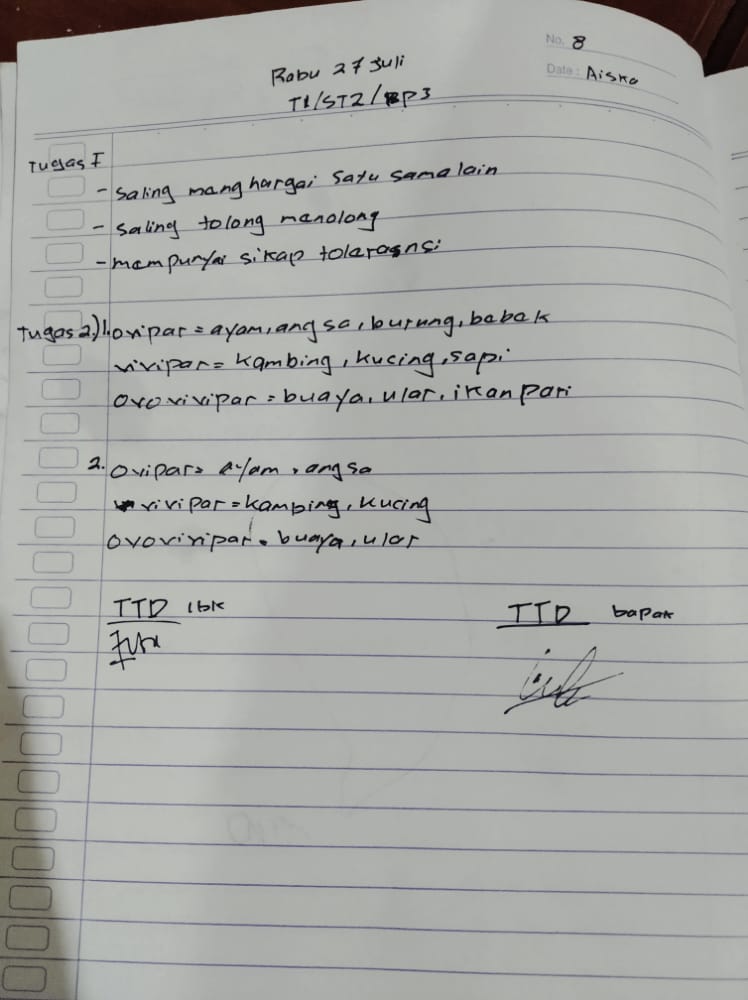 No. 8
Rabu 27 Juli
Date: Aiska
T1/ST2/P3
Tugas I
- saling manghargai satu sama lain
- saling tolong manolong
- mempunyai sikap toleransi
Tugas 2) 1. ovipar = ayam, angsa, burung, babak
vivipar = kambing, kucing, sapi
ovovivipar = buaya, ular, ikan pari
2. ovipar = ayam, angsa
vivipar = kambing, kucing
ovovivipar = buaya, ular
TTD ibk TTD bapak